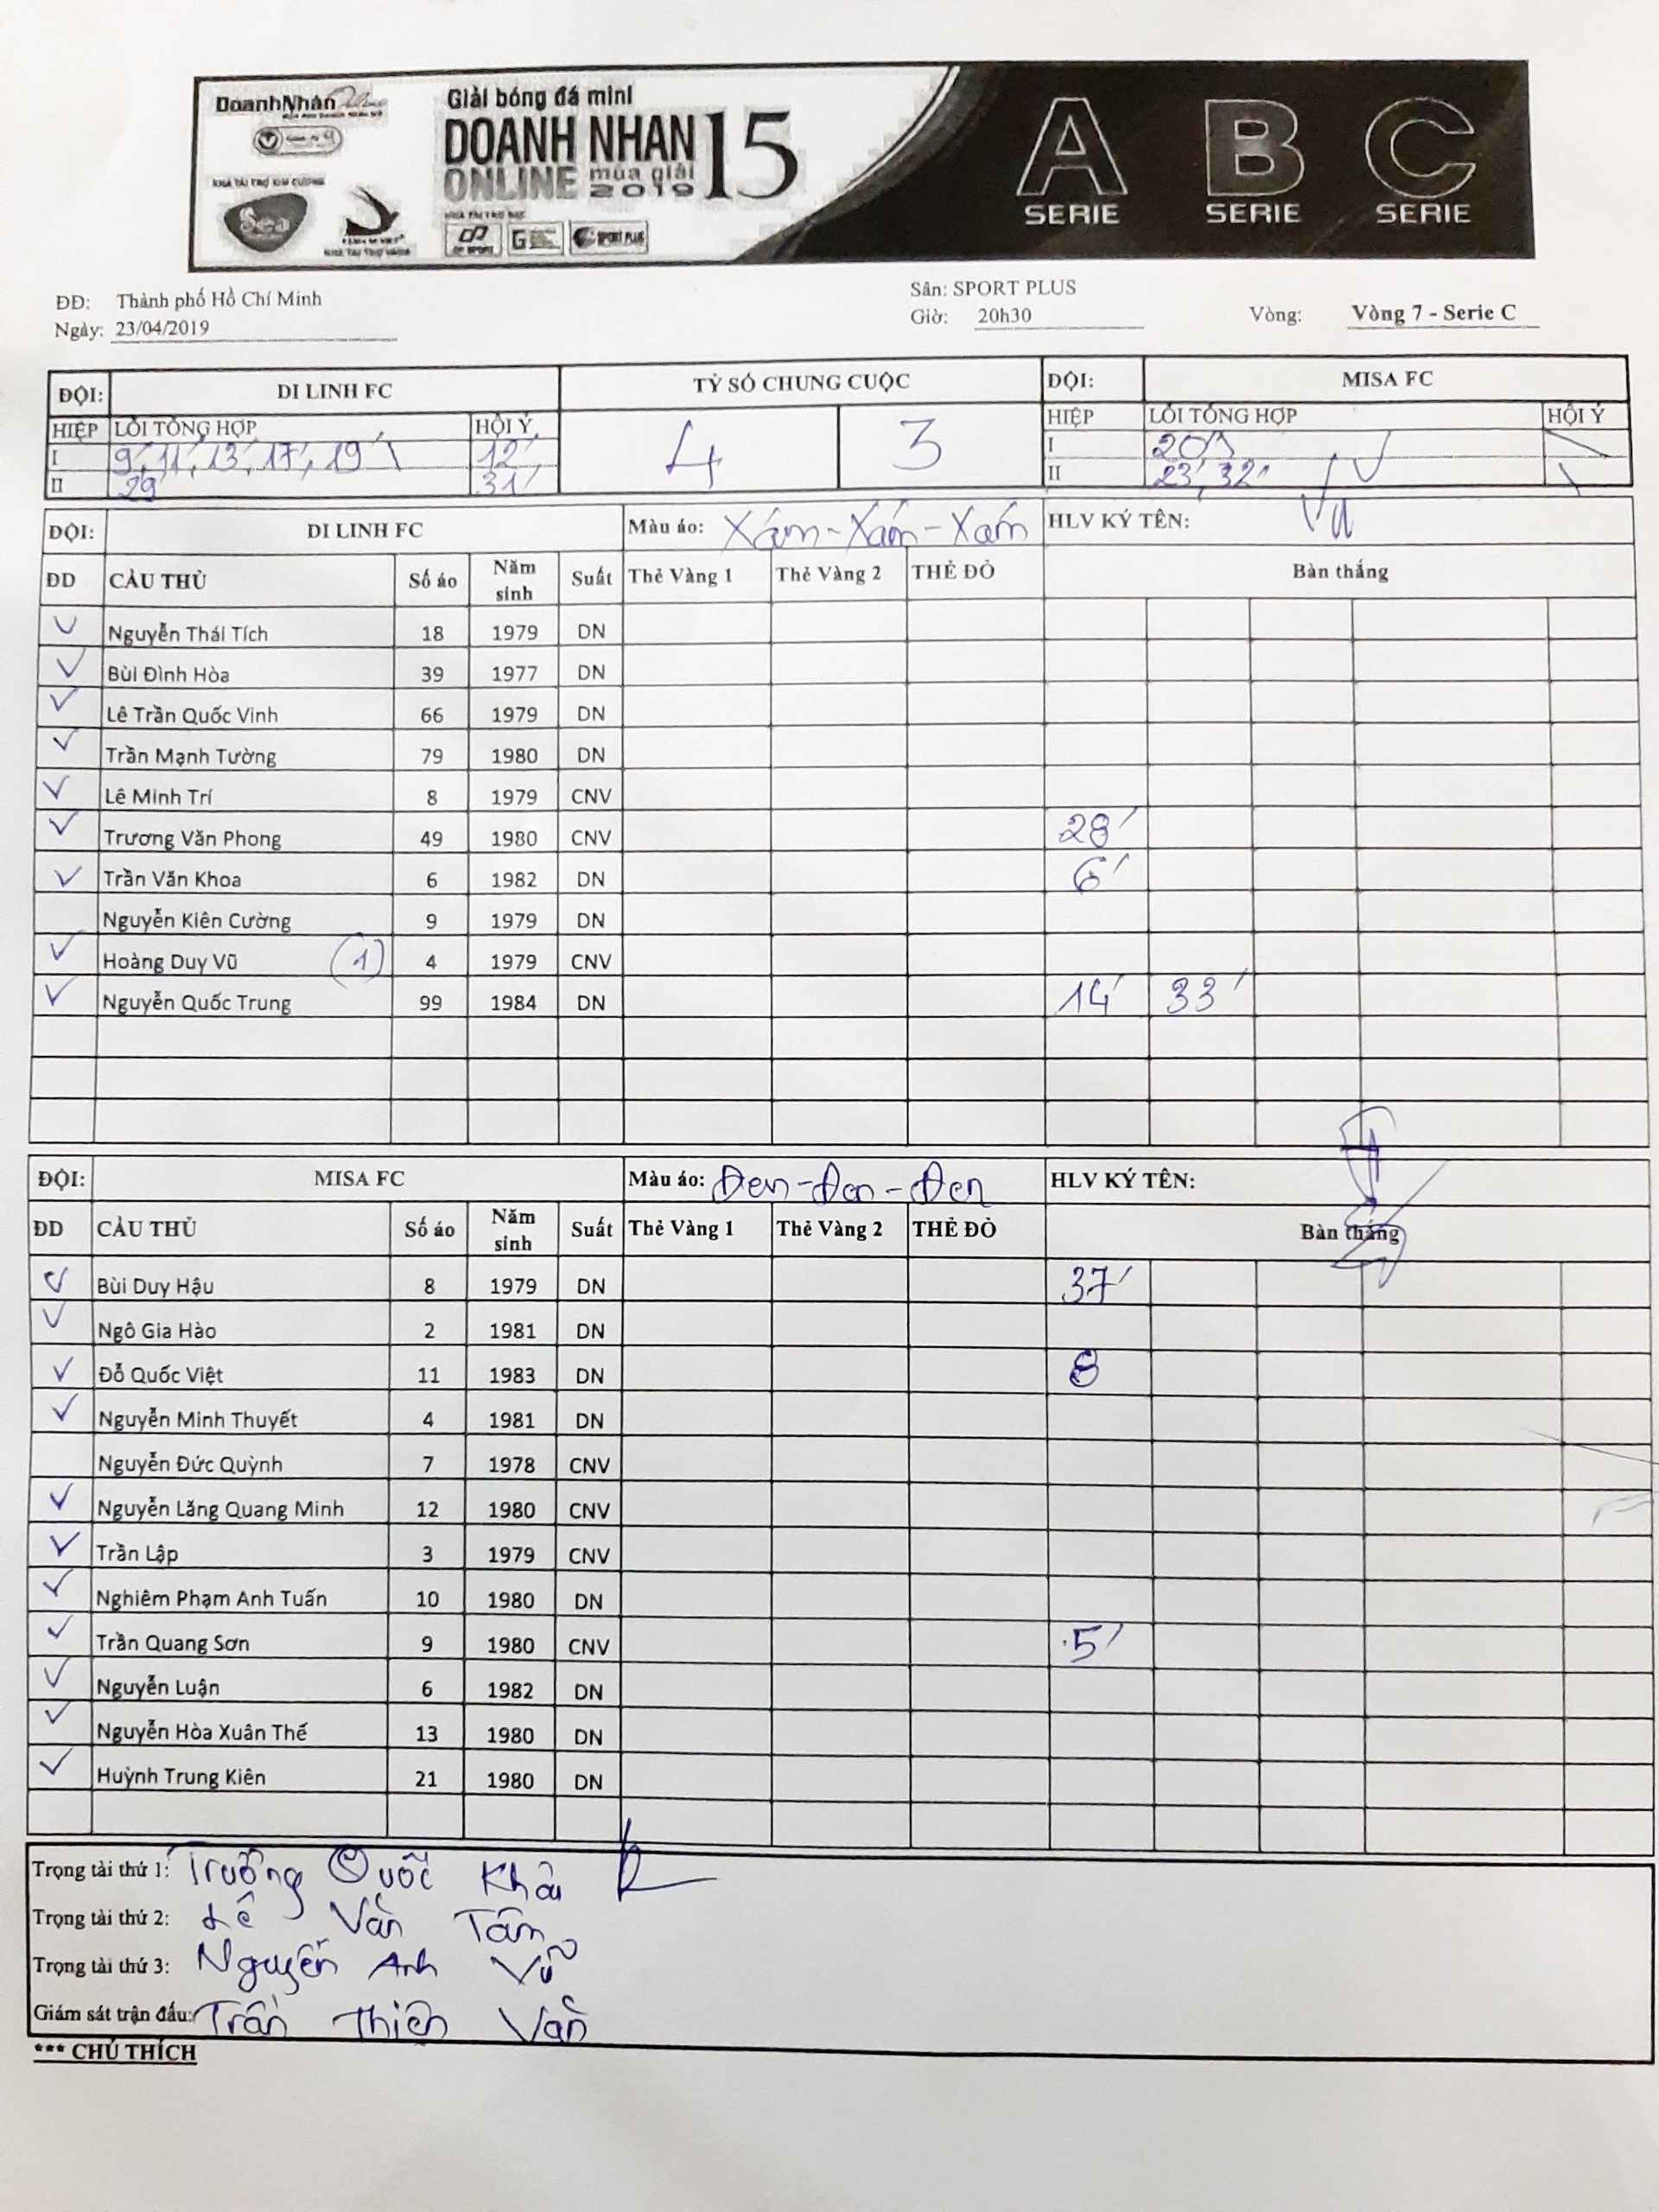 DoanhNhân Online
Giải bóng đá mini
DOANH NHAN
ONLINE mùa giải 2019
15
NHÀ TÀI TRỢ KIM CƯƠNG
Sea
NHÀ TÀI TRỢ VÀNG
G
SPORT PLUS
A SERIE B SERIE C SERIE
ĐĐ: Thành phố Hồ Chí Minh Sân: SPORT PLUS
Ngày: 23/04/2019 Giờ: 20h30 Vòng: Vòng 7 - Serie C
ĐỘI: DI LINH FC TỶ SỐ CHUNG CUỘC ĐỘI: MISA FC
HIỆP LỖI TỔNG HỢP HỘI Ý 4 3 HIỆP LỖI TỔNG HỢP HỘI Ý
I 9', 11', 13', 17', 19' 12' I 20'
II 29' 31' II 23', 32'
ĐỘI: DI LINH FC Màu áo: Xám-Xám-Xám HLV KÝ TÊN:
ĐD CẦU THỦ Số áo Năm sinh Suất Thẻ Vàng 1 Thẻ Vàng 2 THẺ ĐỎ Bàn thắng
Nguyễn Thái Tích 18 1979 DN
Bùi Đình Hòa 39 1977 DN
Lê Trần Quốc Vinh 66 1979 DN
Trần Mạnh Tường 79 1980 DN
Lê Minh Trí 8 1979 CNV
Trương Văn Phong 49 1980 CNV 28'
Trần Văn Khoa 6 1982 DN 6'
Nguyễn Kiên Cường 9 1979 DN
Hoàng Duy Vũ (1) 4 1979 CNV
Nguyễn Quốc Trung 99 1984 DN 14' 33'
ĐỘI: MISA FC Màu áo: Đen-Đen-Đen HLV KÝ TÊN:
ĐD CẦU THỦ Số áo Năm sinh Suất Thẻ Vàng 1 Thẻ Vàng 2 THẺ ĐỎ Bàn thắng
Bùi Duy Hậu 8 1979 DN 37'
Ngô Gia Hào 2 1981 DN
Đỗ Quốc Việt 11 1983 DN 8
Nguyễn Minh Thuyết 4 1981 DN
Nguyễn Đức Quỳnh 7 1978 CNV
Nguyễn Lăng Quang Minh 12 1980 CNV
Trần Lập 3 1979 CNV
Nghiêm Phạm Anh Tuấn 10 1980 DN
Trần Quang Sơn 9 1980 CNV 5'
Nguyễn Luận 6 1982 DN
Nguyễn Hòa Xuân Thế 13 1980 DN
Huỳnh Trung Kiên 21 1980 DN
Trọng tài thứ 1: Trương Quốc Khải
Trọng tài thứ 2: Lê Văn Tâm
Trọng tài thứ 3: Nguyễn Anh Vũ
Giám sát trận đấu: Trần Thiện Văn
*** CHÚ THÍCH